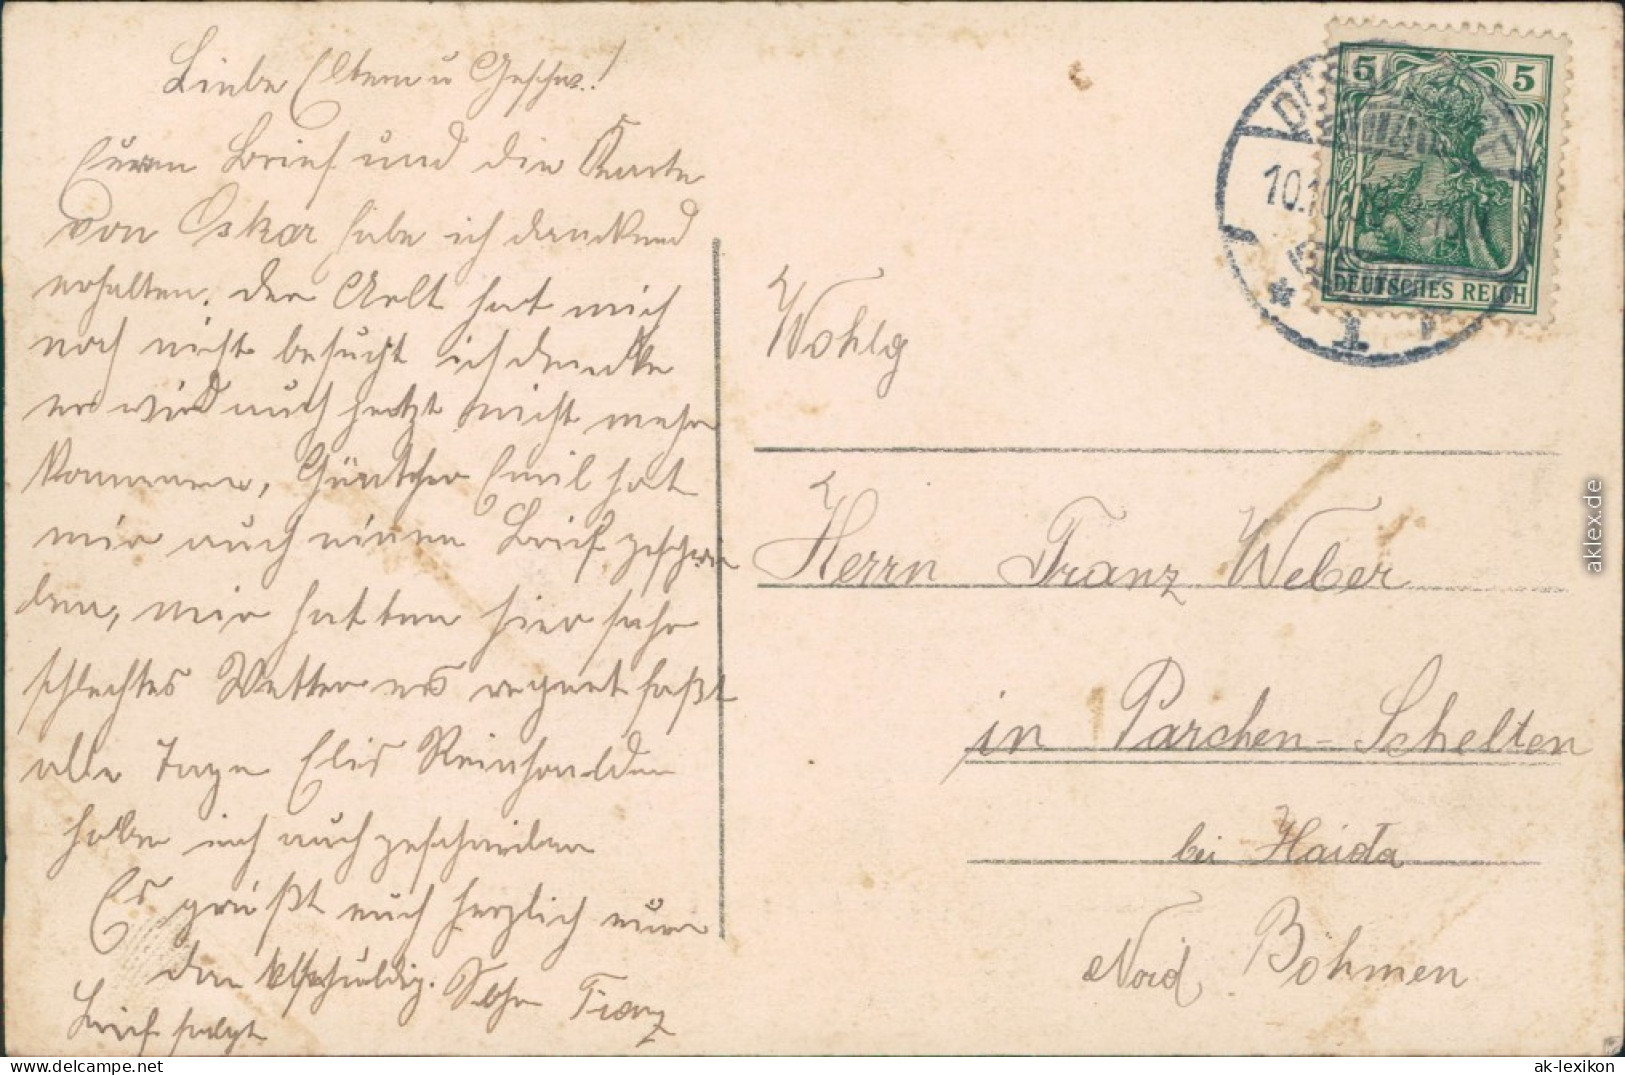 Liebe Eltern u Geschw.!
Euren Brief und die Karte
von Oskar habe ich dankend
erhalten. Der Adelt hat mich
noch nicht besucht ich denke
er wird auch jetzt nicht mehr
kommen, Günther Emil hat
mir auch einen Brief geschrie
ben, wir hatten hier sehr
schlechtes Wetter es regnet faßt
alle Tage
haben mich auch geschrieben
Es grüßt euch herzlich euer
Sohn Franz
Brief folgt
Wohlg
Herrn Franz Weber
in Parchen-Schelten
bei Haida
Nord Böhmen
5 5
DEUTSCHES REICH
10.10.0
* 1
aklex.de
delcampe.net
ak-lexikon